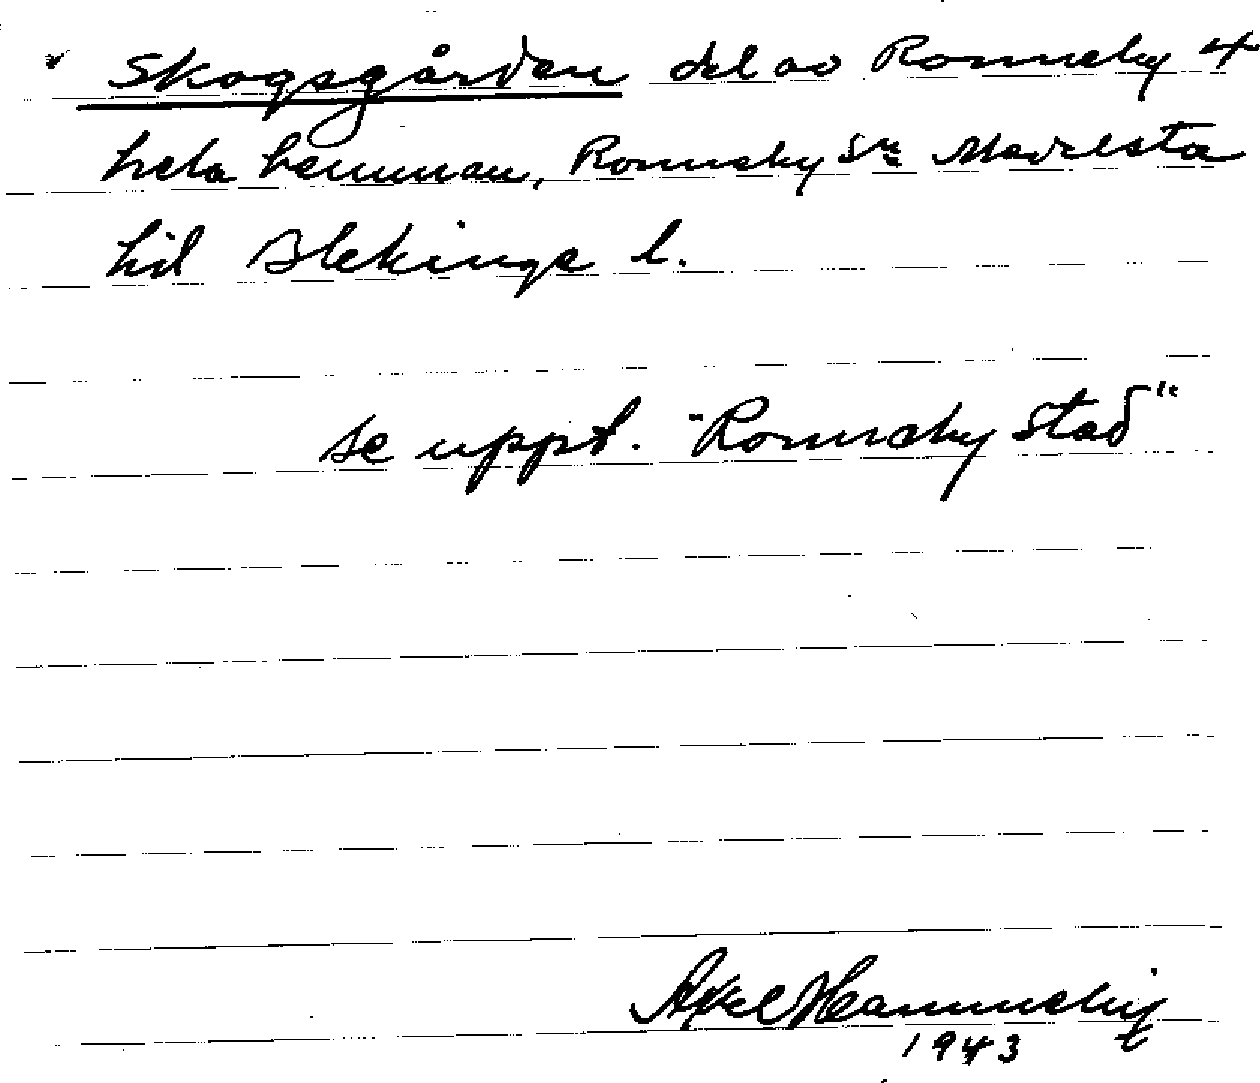 Skogsgården del av Ronneby 4
hela hemman, Ronneby sn Medelsta
hd Blekinge l.
se uppt. "Ronneby stad"
Axel
1943